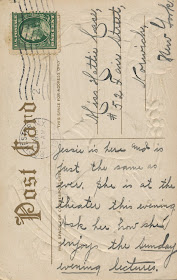 Post Card
THIS SPACE FOR ADDRESS ONLY
Miss Hattie Case,
#52 Fair Street,
Norwich,
New York
Jessie is here and is
just the same as
ever. She is at the
theater this evening
ask her how she
enjoys the Sunday
evening lectures.